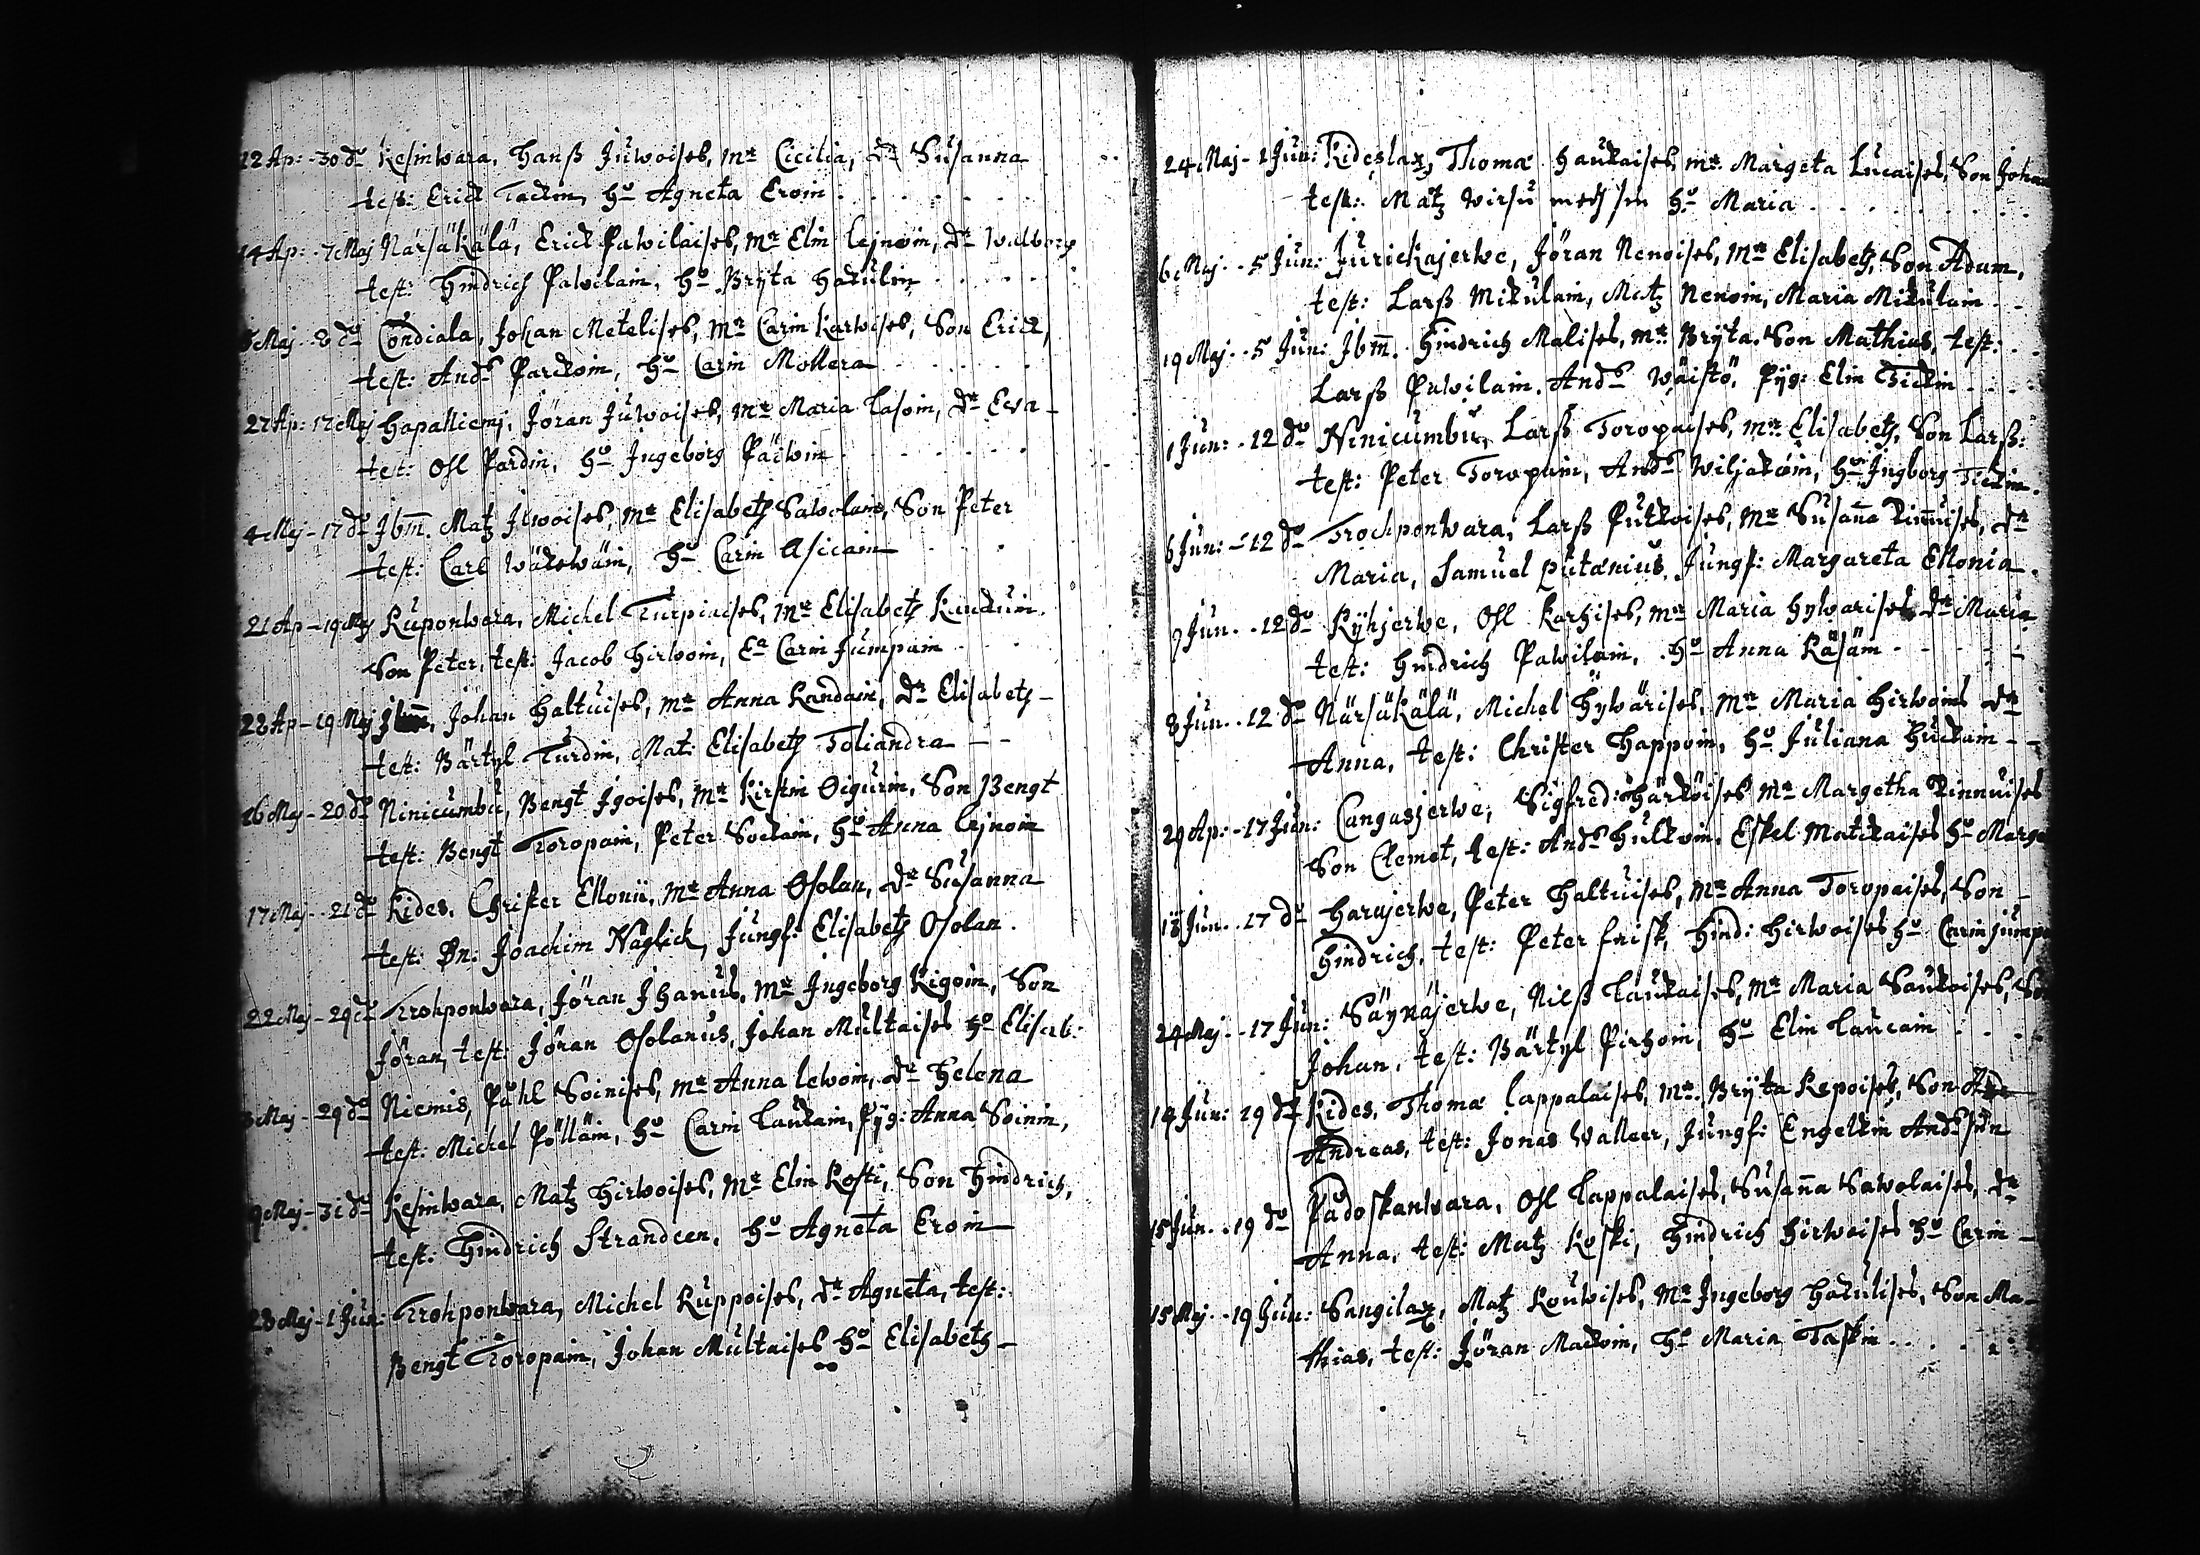 22 Ap: - 30 do Kesinwara, Hanß Juwoises, mr Cicilia, dr Susanna
test: Erick Tackin, ho Agneta Eroin
14 Ap: - 7 Maj Närsäkälä, Erick Pawilaises, mr Elin lejnoin, dr Walborg
test: Hindrich Pawilain, ho Bryta Hakulin
Maj - 8 do Condiala, Johan Metelises, mr Carin Karwises, Son Erick,
test: Ands Parckoin, ho Carin Mollera
27 Ap: 17 Maj Hapalliemj, Jöran Juwoises, mr Maria Lasoin, dr Eva
test: Ofl Pardin, ho Jngeborg Päiwin
4 Maj - 17 do Jbm. Matz Jlwoises, mr Elisabetz Sawolains, Son Peter
test: Carl Wäkewäin, ho Carin Asicain
21 Ap - 19 Maj Ruponwara, Michel Turpiaises, mr Elisabetz Kuckuin
Son Peter, test: Jacob Hirwoin, Ea Carin Jumpain
22 Ap - 19 Maj Jbm, Johan Haltuises, mr Anna Kandain, dr Elisabetz
test: Bärtyl Turdin, Mat: Elisabetz Toliandra
16 Maj - 20 do Ninicumbu, Bengt Jgoises, mr Kirstin Oigurin, Son Bengt
test: Bengt Toropain, Peter Sockain, ho Anna lejnoin
17 Maj - 21 do Kides. Christer Ellonii, mr Anna Osolan, dr Susanna
test: Dn: Joachim Näglick, Jungf: Elisabetz Osolan.
22 Maj - 29 do Trohponwara, Jöran Jhanus, mr Jngeborg Kigoin, Son
Jöran, test: Jöran Osolanus, Johan Multaises ho Elisab:
Maj - 29 do Niemis, Påhl Soinises, mr Anna lewoin, dr Helena
test: Michel Pölläin, ho Carin Laukain, Pyg: Anna Soinin,
9 Maj - 31 do Kesinwara, Matz Hirwoises, mr Elin Kosti, Son Hindrich,
test: Hindrich Strandeen, ho Agneta Eroin
28 Maj - 1 Jun: Trohponwara, Michel Ruppoises, dr Agneta, test:
Bengt Toropain, Johan Multaises ho Elisabetz
24 Maj - 1 Jun: Kideslax, Thomæ Haukaises, mr Margeta Lucaises, Son Johan
test: Matz Wirsu med sin ho Maria
6 Maj - 5 Jun: Jurickajerwe, Jöran Nenoises, mr Elisabetz, Son Adam,
test: Larß Mikulain, Matz Nenoin, Maria Mikulain
19 Maj - 5 Jun: Jbm. Hindrich Malises, mr Bryta, Son Mathias, test:
Larß Pawilain, Ands Wäistö, Pyg: Elin Tickin
1 Jun: - 12 do Ninicumbu, Larß Toropaises, mr Elisabetz, Son Larß:
test: Peter Toropain, Ands Wiljakoin, ho Jngborg Tickin.
6 Jun: - 12 do Trochponwara, Larß Putkoises, mr Susana Rinnuises, dr
Maria, Samuel Putænius, Jungf: Margareta Ellonia.
7 Jun. - 12 do Kyhjerwe, Ofl Karhises, mr Maria Hywarises dr Maria
test: Hindrich Pawilain, ho Anna Käsäin
8 Jun. - 12 do Närsäkälä, Michel Hywärises, mr Maria Hirwoins dr
Anna, test: Christer Happoin, ho Juliana Huckain
29 Ap: - 17 Jun: Cangasjerwe, Sigfred Härköises mr Margetha Rinnuises
Son Clemet, test: Ands Hulkoin, Eskel Matikaises ho Marge
18 Jun. 17 do Harajerwe, Peter Haltuises, mr Anna Toropaises, Son
Hindrich, test: Peter frisk, Hind: Hirwoises ho Carin Jumpa
24 Maj - 17 Jun: Säynäjerwe, Nilß Laukaises, mr Maria Saukoises, So
Johan, test: Bärtyl Pirhoin, ho Elin Laucain
14 Jun: 19 do Kides, Thomæ Lappalaises, mr Bryta Repoises, Son
Andreas, test: Jonas Walleer, Jungf: Engelkin Ands sun
15 Jun. 19 do Padoskanwara, Ofl Lappalaises, Susana Sawolaises, dr
Anna, test: Matz Koski, Hindrich Hirwoises ho Carin
15 Maj - 19 Jun: Sangilax, Matz Kouwises, mr Jngeborg Hakulises, Son Ma-
thias, test: Jöran Mackoin, ho Maria Taskin